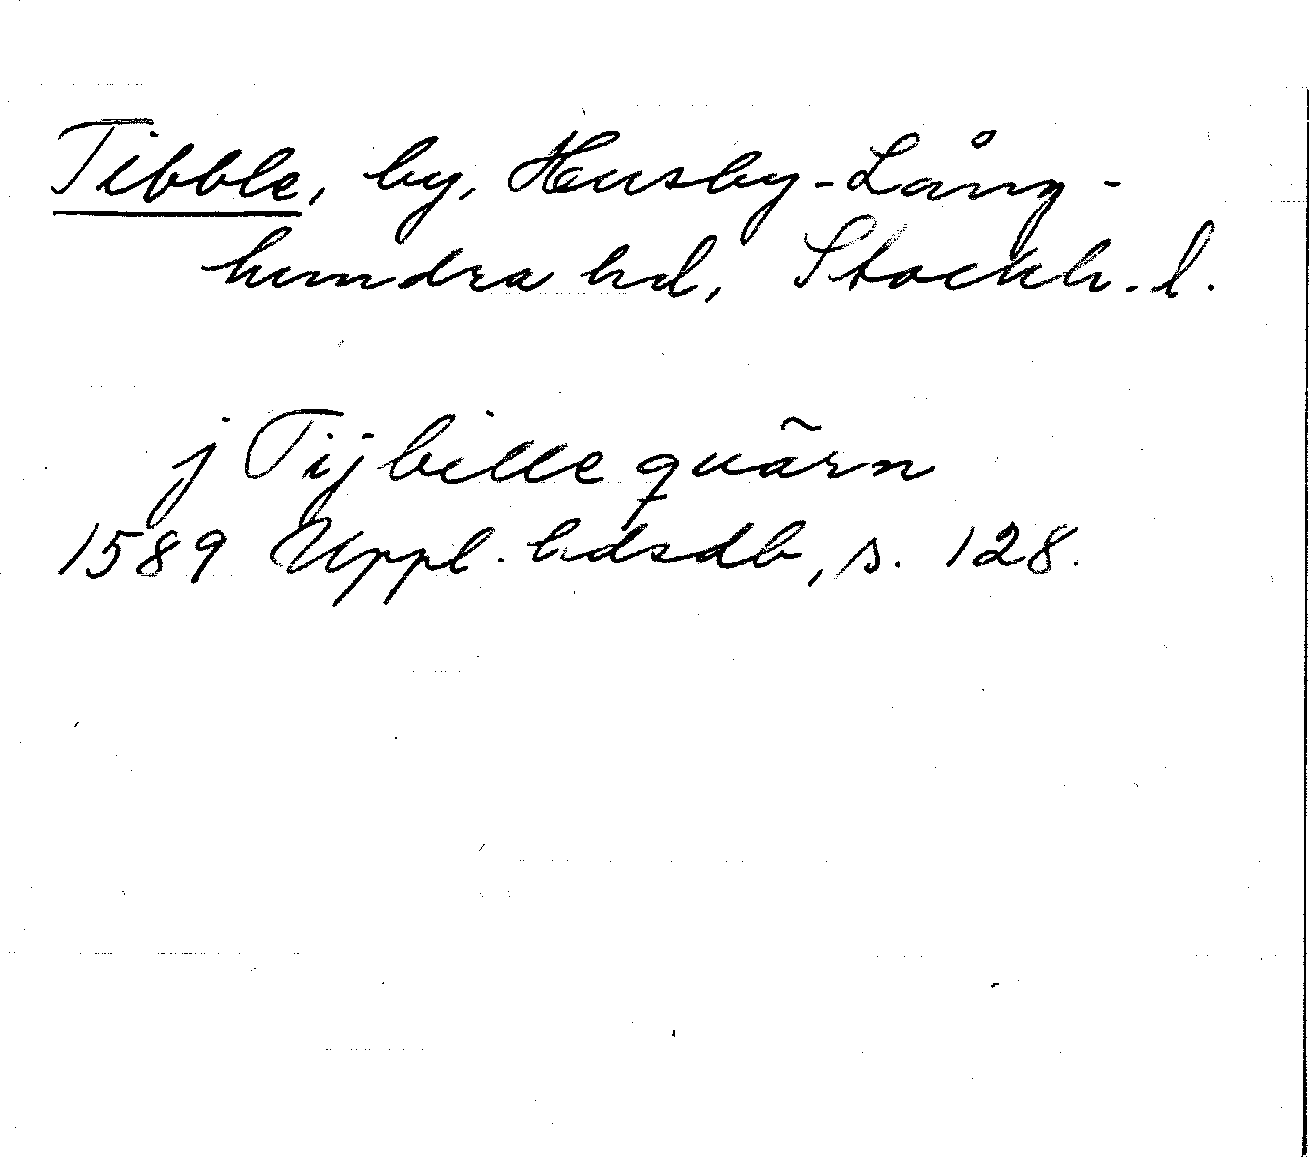 Tibble, by, Husby-Lång-
hundra hd, Stockh. l.
j Tijbille quãrn
1589 Uppl. hdsdb, s. 128.